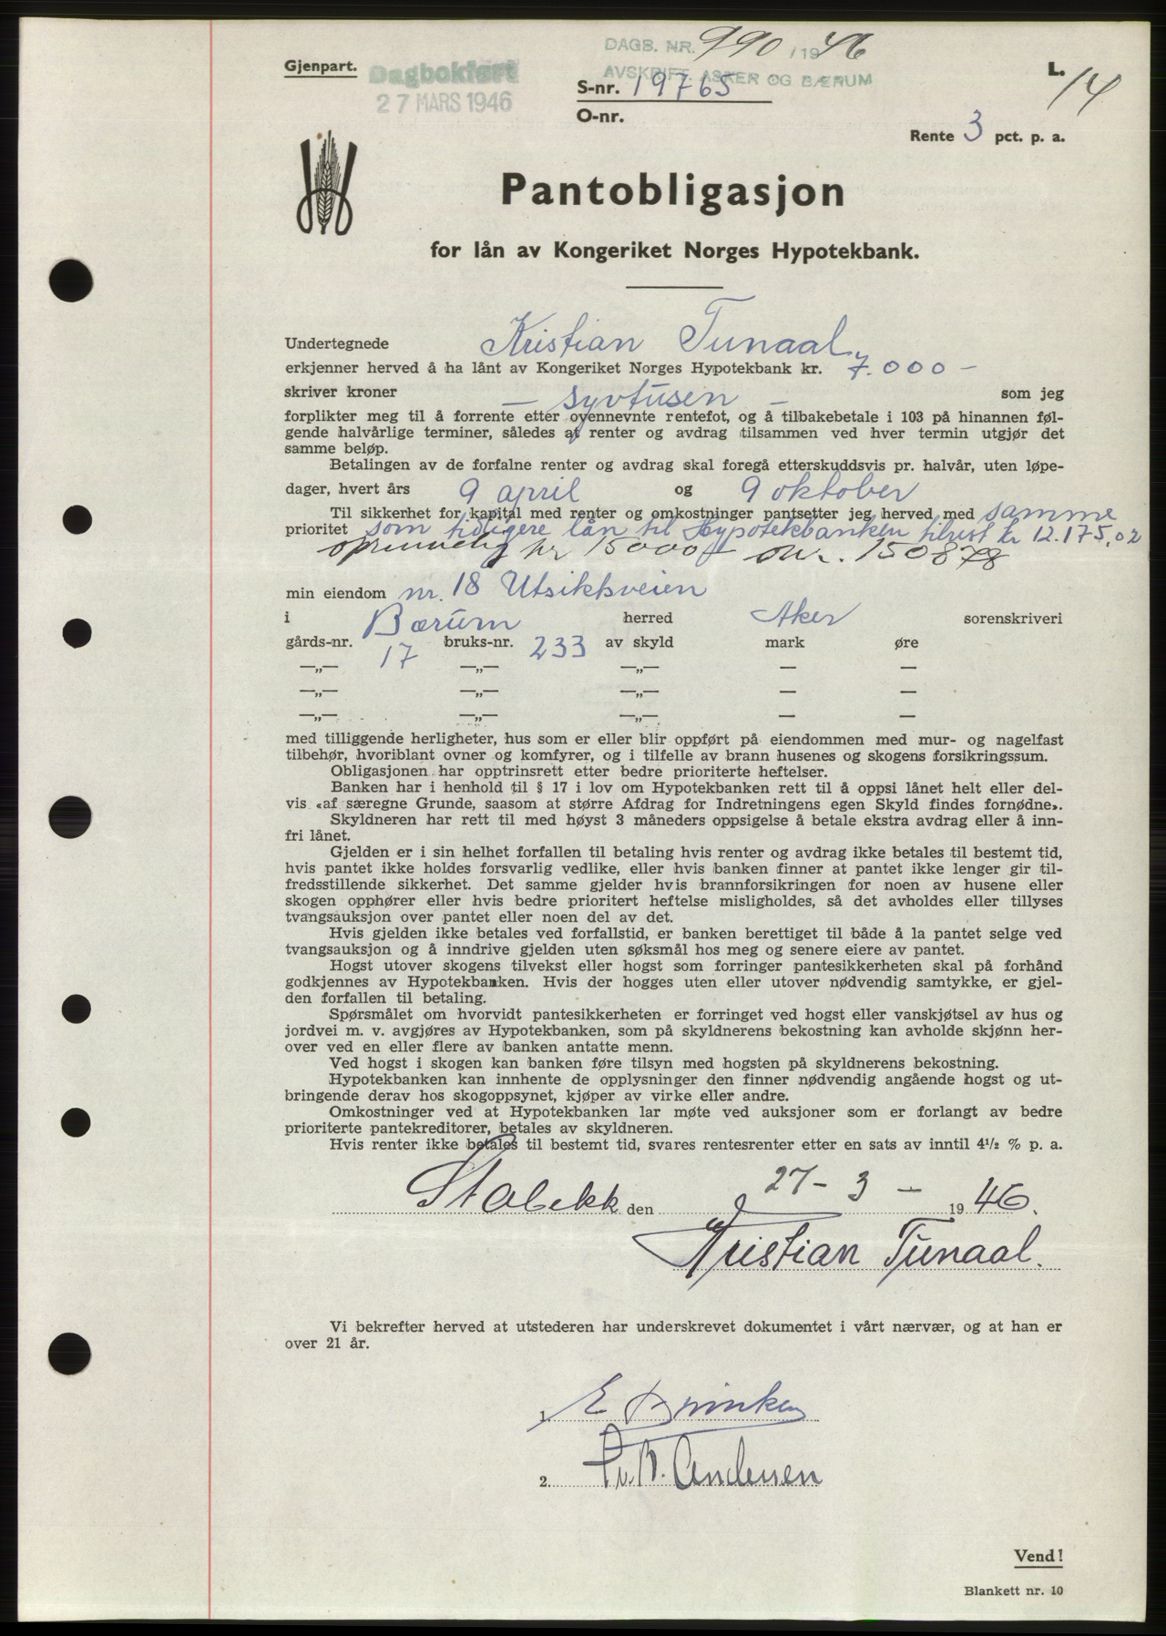 DAGB. NR. 990 / 1946
AVSKRIFT. ASKER OG BÆRUM
Gjenpart.
Dagbokført
27 MARS 1946
S-nr. 19765
O-nr.
L. 14
Rente 3 pct. p. a.
Pantobligasjon
for lån av Kongeriket Norges Hypotekbank.
Undertegnede Kristian Tunaal
erkjenner herved å ha lånt av Kongeriket Norges Hypotekbank kr. 7.000 –
skriver kroner – syvtusen – som jeg
forplikter meg til å forrente etter ovennevnte rentefot, og å tilbakebetale i 103 på hinannen føl-
gende halvårlige terminer, således at renter og avdrag tilsammen ved hver termin utgjør det
samme beløp.
Betalingen av de forfalne renter og avdrag skal foregå etterskuddsvis pr. halvår, uten løpe-
dager, hvert års 9 april og 9 oktober
Til sikkerhet for kapital med renter og omkostninger pantsetter jeg herved med samme
prioritet som tidligere lån til Hypotekbanken tilrest kr 12.175,02
oprinnelig kr 15000 – nr. 150878
min eiendom nr. 18 Utsikkveien
i Bærum herred Aker sorenskriveri
gårds-nr. 17 bruks-nr. 233 av skyld mark øre
—„— —„— —„— — —
—„— —„— —„— — —
—„— —„— —„— — —
med tilliggende herligheter, hus som er eller blir oppført på eiendommen med mur- og nagelfast
tilbehør, hvoriblant ovner og komfyrer, og i tilfelle av brann husenes og skogens forsikringssum.
Obligasjonen har opptrinsrett etter bedre prioriterte heftelser.
Banken har i henhold til § 17 i lov om Hypotekbanken rett til å oppsi lånet helt eller del-
vis «af særegne Grunde, saasom at større Afdrag for Indretningens egen Skyld findes fornødne».
Skyldneren har rett til med høyst 3 måneders oppsigelse å betale ekstra avdrag eller å inn-
fri lånet.
Gjelden er i sin helhet forfallen til betaling hvis renter og avdrag ikke betales til bestemt tid,
hvis pantet ikke holdes forsvarlig vedlike, eller hvis banken finner at pantet ikke lenger gir til-
fredsstillende sikkerhet. Det samme gjelder hvis brannforsikringen for noen av husene eller
skogen opphører eller hvis bedre prioritert heftelse misligholdes, så det avholdes eller tillyses
tvangsauksjon over pantet eller noen del av det.
Hvis gjelden ikke betales ved forfallstid, er banken berettiget til både å la pantet selge ved
tvangsauksjon og å inndrive gjelden uten søksmål hos meg og senere eiere av pantet.
Hogst utover skogens tilvekst eller hogst som forringer pantesikkerheten skal på forhånd
godkjennes av Hypotekbanken. Hvis der hogges uten eller utover nødvendig samtykke, er gjel-
den forfallen til betaling.
Spørsmålet om hvorvidt pantesikkerheten er forringet ved hogst eller vanskjøtsel av hus og
jordvei m. v. avgjøres av Hypotekbanken, som på skyldnerens bekostning kan avholde skjønn her-
over ved en eller flere av banken antatte menn.
Ved hogst i skogen kan banken føre tilsyn med hogsten på skyldnerens bekostning.
Hypotekbanken kan innhente de opplysninger den finner nødvendig angående hogst og ut-
bringende derav hos skogoppsynet, kjøper av virke eller andre.
Omkostninger ved at Hypotekbanken lar møte ved auksjoner som er forlangt av bedre
prioriterte pantekreditorer, betales av skyldneren.
Hvis renter ikke betales til bestemt tid, svares rentesrenter etter en sats av inntil 4½ % p. a.
Stabekk den 27 – 3 – 1946.
Kristian Tunaal.
Vi bekrefter herved at utstederen har underskrevet dokumentet i vårt nærvær, og at han er
over 21 år.
1. E
2. B. Andersen
Vend!
Blankett nr. 10